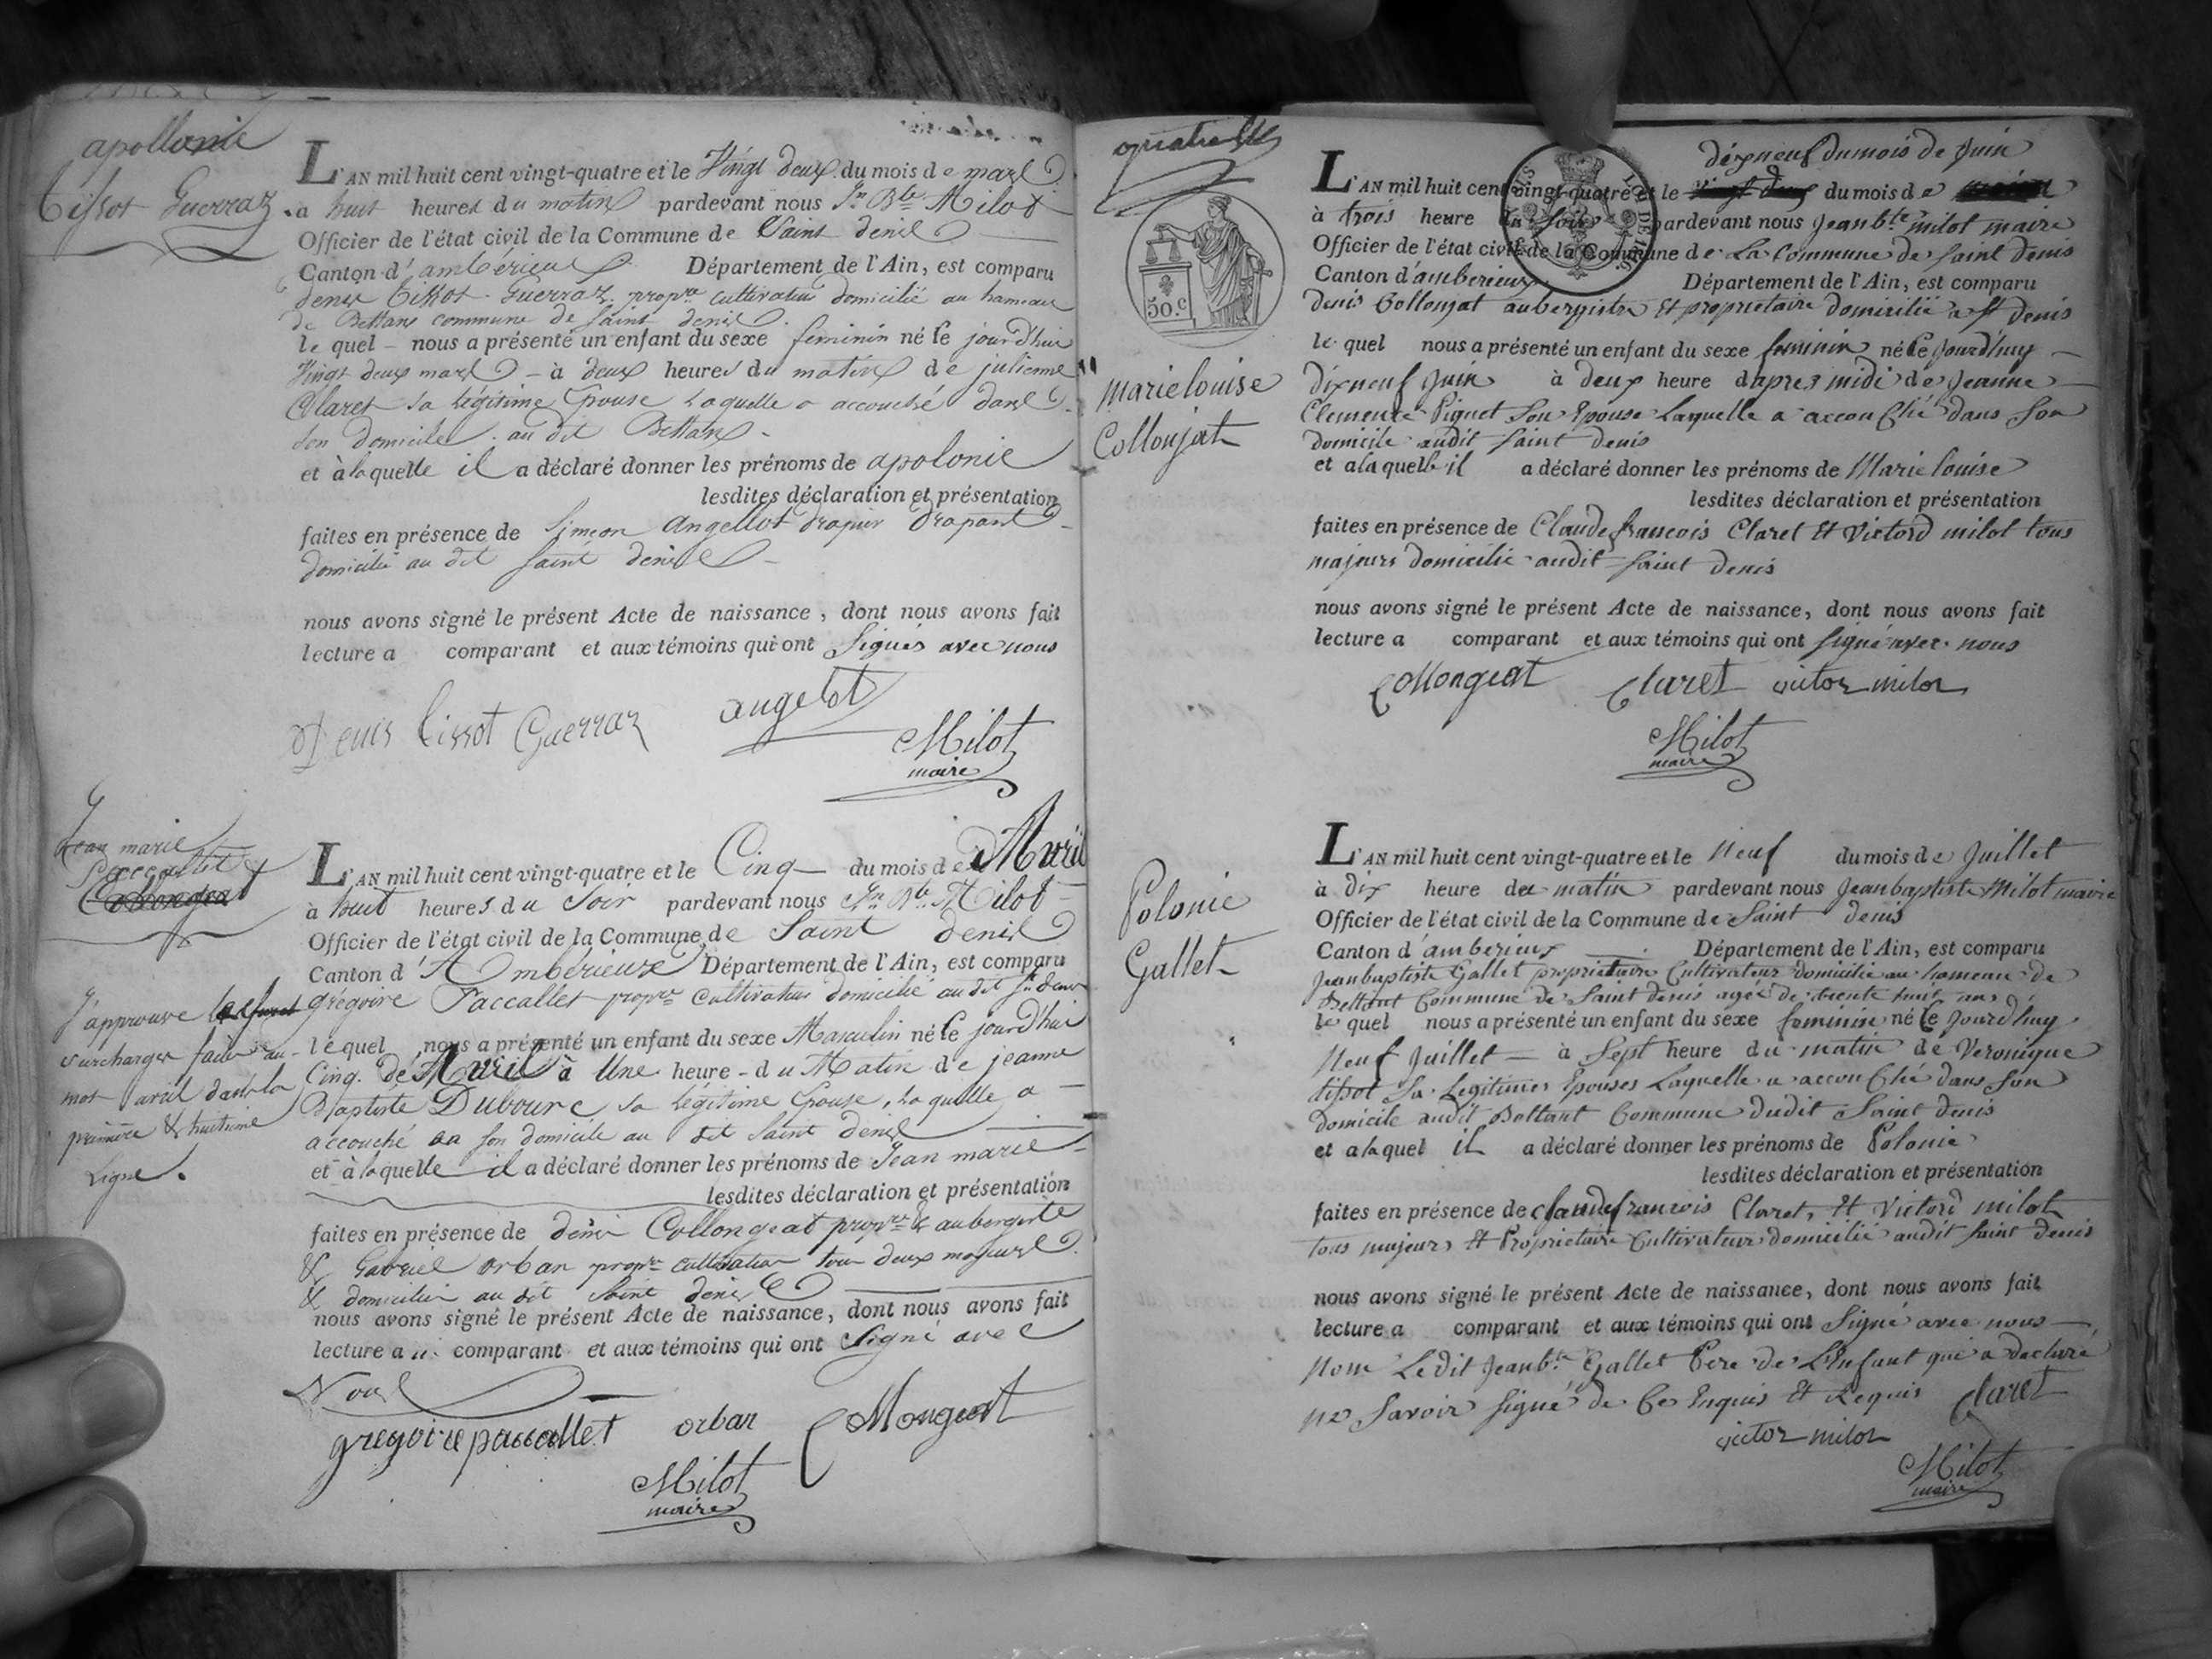 apollonie
Tissot Guerraz
L'AN mil huit cent vingt-quatre et le Vingt deux du mois de mars
à huit heures du matin pardevant nous Jn Bte Milot
Officier de l'état civil de la Commune de Saint denis
Canton d'ambérieux Département de l'Ain, est comparu
denis Tissot Guerraz propre cultivateur domicilié au hameau
de Bettans commune de Saint denis
le quel nous a présenté un enfant du sexe feminin né le jourd'hui
Vingt deux mars à deux heures du matin de julienne
Claret sa légitime Epouse laquelle a accouché dans
son domicile au dit Bettans
et à laquelle il a déclaré donner les prénoms de apolonie
lesdites déclaration et présentation
faites en présence de Simeon Angellot drapier drapant
domicilié au dit Saint denis
nous avons signé le présent Acte de naissance, dont nous avons fait
lecture a comparant et aux témoins qui ont Signés avec nous
Denis tissot Guerraz angelot
Milot
maire
Jean marie
Paccallet
Collongeat
L'AN mil huit cent vingt-quatre et le Cinq du mois de Avril
à huit heures du Soir pardevant nous Jn Bte Milot
Officier de l'état civil de la Commune de Saint denis
Canton d'Ambérieux Département de l'Ain, est comparu
grégoire Paccallet propre cultivateur domicilié au dit St denis
le quel nous a présenté un enfant du sexe Masculin né le jourd'hui
Cinq de Avril à Une heure du Matin de jeanne
Baptiste Dubourc sa légitime Epouse, laquelle a
accouché en son domicile au dit Saint denis
et à laquelle il a déclaré donner les prénoms de Jean marie
lesdites déclaration et présentation
faites en présence de denis Collongeat propre & aubergiste
& Gabriel orban propre cultivateur tous deux majeurs
& domiciliés au dit Saint denis
nous avons signé le présent Acte de naissance, dont nous avons fait
lecture a comparant et aux témoins qui ont Signé avec
Nous
gregoire paccallet orban Collongeat
Milot
maire
J'approuve la
surcharge faite au
mot avril dans la
première & huitième
Ligne.
quatre
50.c
dixneuf du mois de Juin
L'AN mil huit cent vingt-quatre et le vingt deux du mois de
à trois heure du soir pardevant nous Jean bte milot maire
Officier de l'état civil de la Commune de La Commune de Saint Denis
Canton d'amberieux Département de l'Ain, est comparu
denis Collonjat aubergiste Et proprietaire domicilié a st Denis
le quel nous a présenté un enfant du sexe feminin né le Jourd'huy
dixneuf Juin à deux heure dapres midi de Jeanne
Clemence Piquet Son Epouse Laquelle a accouché dans Son
domicile audit Saint denis
et a la quelle il a déclaré donner les prénoms de Marie louise
lesdites déclaration et présentation
faites en présence de Claude francois Claret Et Victord milot tous
majeurs domicilié audit Saint Denis
nous avons signé le présent Acte de naissance, dont nous avons fait
lecture a comparant et aux témoins qui ont signé avec nous
Collongeat Claret victor milot
Milot
maire
marie louise
Collonjat
L'AN mil huit cent vingt-quatre et le Neuf du mois de Juillet
à dix heure du matin pardevant nous Jean baptiste Milot maire
Officier de l'état civil de la Commune de Saint denis
Canton d'amberieux Département de l'Ain, est comparu
Jean baptiste Gallet proprietaire Cultivateur domicilié au hameau de
Bettant Commune de Saint denis agée de trente huit ans
le quel nous a présenté un enfant du sexe feminin né le Jourd'huy
Neuf Juillet à Sept heure du matin de Veronique
tissot Sa Legitimes Epouses Laquelle a accouché dans Son
domicile audit Bettant Commune dudit Saint denis
et a la quel il a déclaré donner les prénoms de Polonie
lesdites déclaration et présentation
faites en présence de claude francois Claret, Et Victord milot
tous majeurs Et Proprietaire Cultivateur domicilié audit Saint denis
nous avons signé le présent Acte de naissance, dont nous avons fait
lecture a comparant et aux témoins qui ont Signé avec nous
Nom Ledit Jean bte Gallet Pere de L'Enfant qui a declaré
ne Savoir signé de Ce Enquis Et Requis Claret
victor milot
Milot
maire
Polonie
Gallet